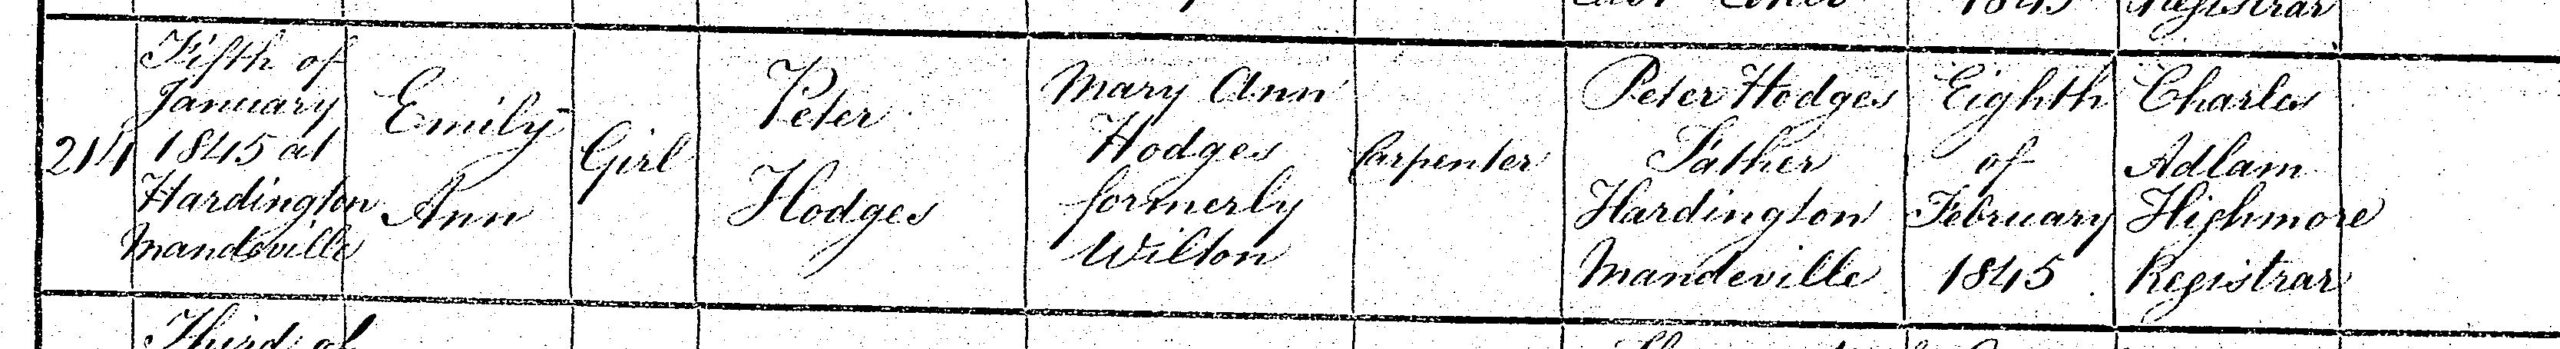 1845 Registrar
214
Fifth of
January
1845 at
Hardington
Mandeville
Emily
Ann
Girl
Peter
Hodges
Mary Ann
Hodges
formerly
Wilton
Carpenter
Peter Hodges
Father
Hardington
Mandeville
Eighth
of
February
1845
Charles
Adlam
Highmore
Registrar
Third of